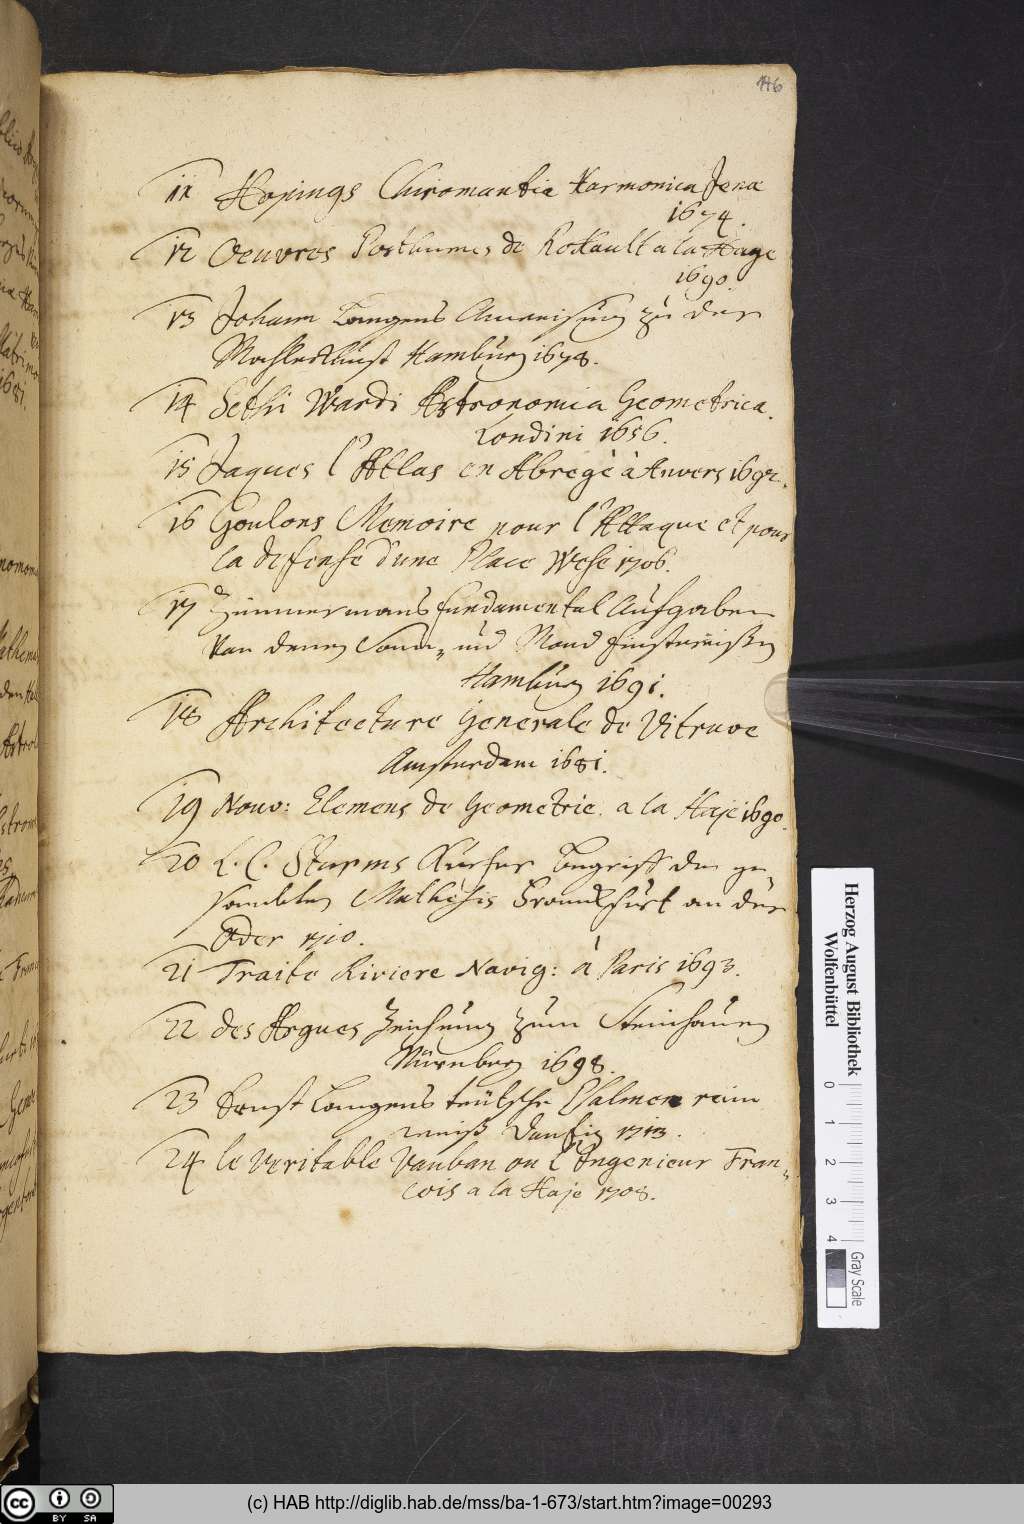 146
11 Hopings Chiromantia Harmonica Jena
1674.
12 Oeuvres Posthumes de Rohault a la Haye
1690.
13 Johann Langens Anweisung zu der
Hamburg 1678.
14 Sethi Wardi Astronomia Geometrica.
Londini 1656.
15 Jaques l'Atlas en Abregè à Anvers 1692.
16 Goulons Memoire pour l'Attaque et pour
la defense d'une Place Wese 1706.
17 Zimmermans fundamental Aufgaben
Von denen Sonn- und Mond finsternißen
Hamburg 1691.
18 Architecture Generale de Vitruve
Amsterdam 1681.
19 Nouv: Elemens de Geometrie. a la Haje 1690.
20 L. C. Sturms Kurtzer Begriff der ge-
sambten Mathesis Franckfurt an der
Oder 1710.
21 Traite Riviere Navig: à Paris 1693.
22 des Argues Zeichnung zum Steinhauen
Nürnberg 1698.
23 Ernst Langens teütsche Psalmen reim
weiß Dantzig 1713.
24 le veritable Vauban ou l'Ingenieur Fran-
cois a la Haje 1708.
Herzog August Bibliothek
Wolfenbüttel
0 1 2 3 4
Gray Scale
cc BY SA
(c) HAB http://diglib.hab.de/mss/ba-1-673/start.htm?image=00293